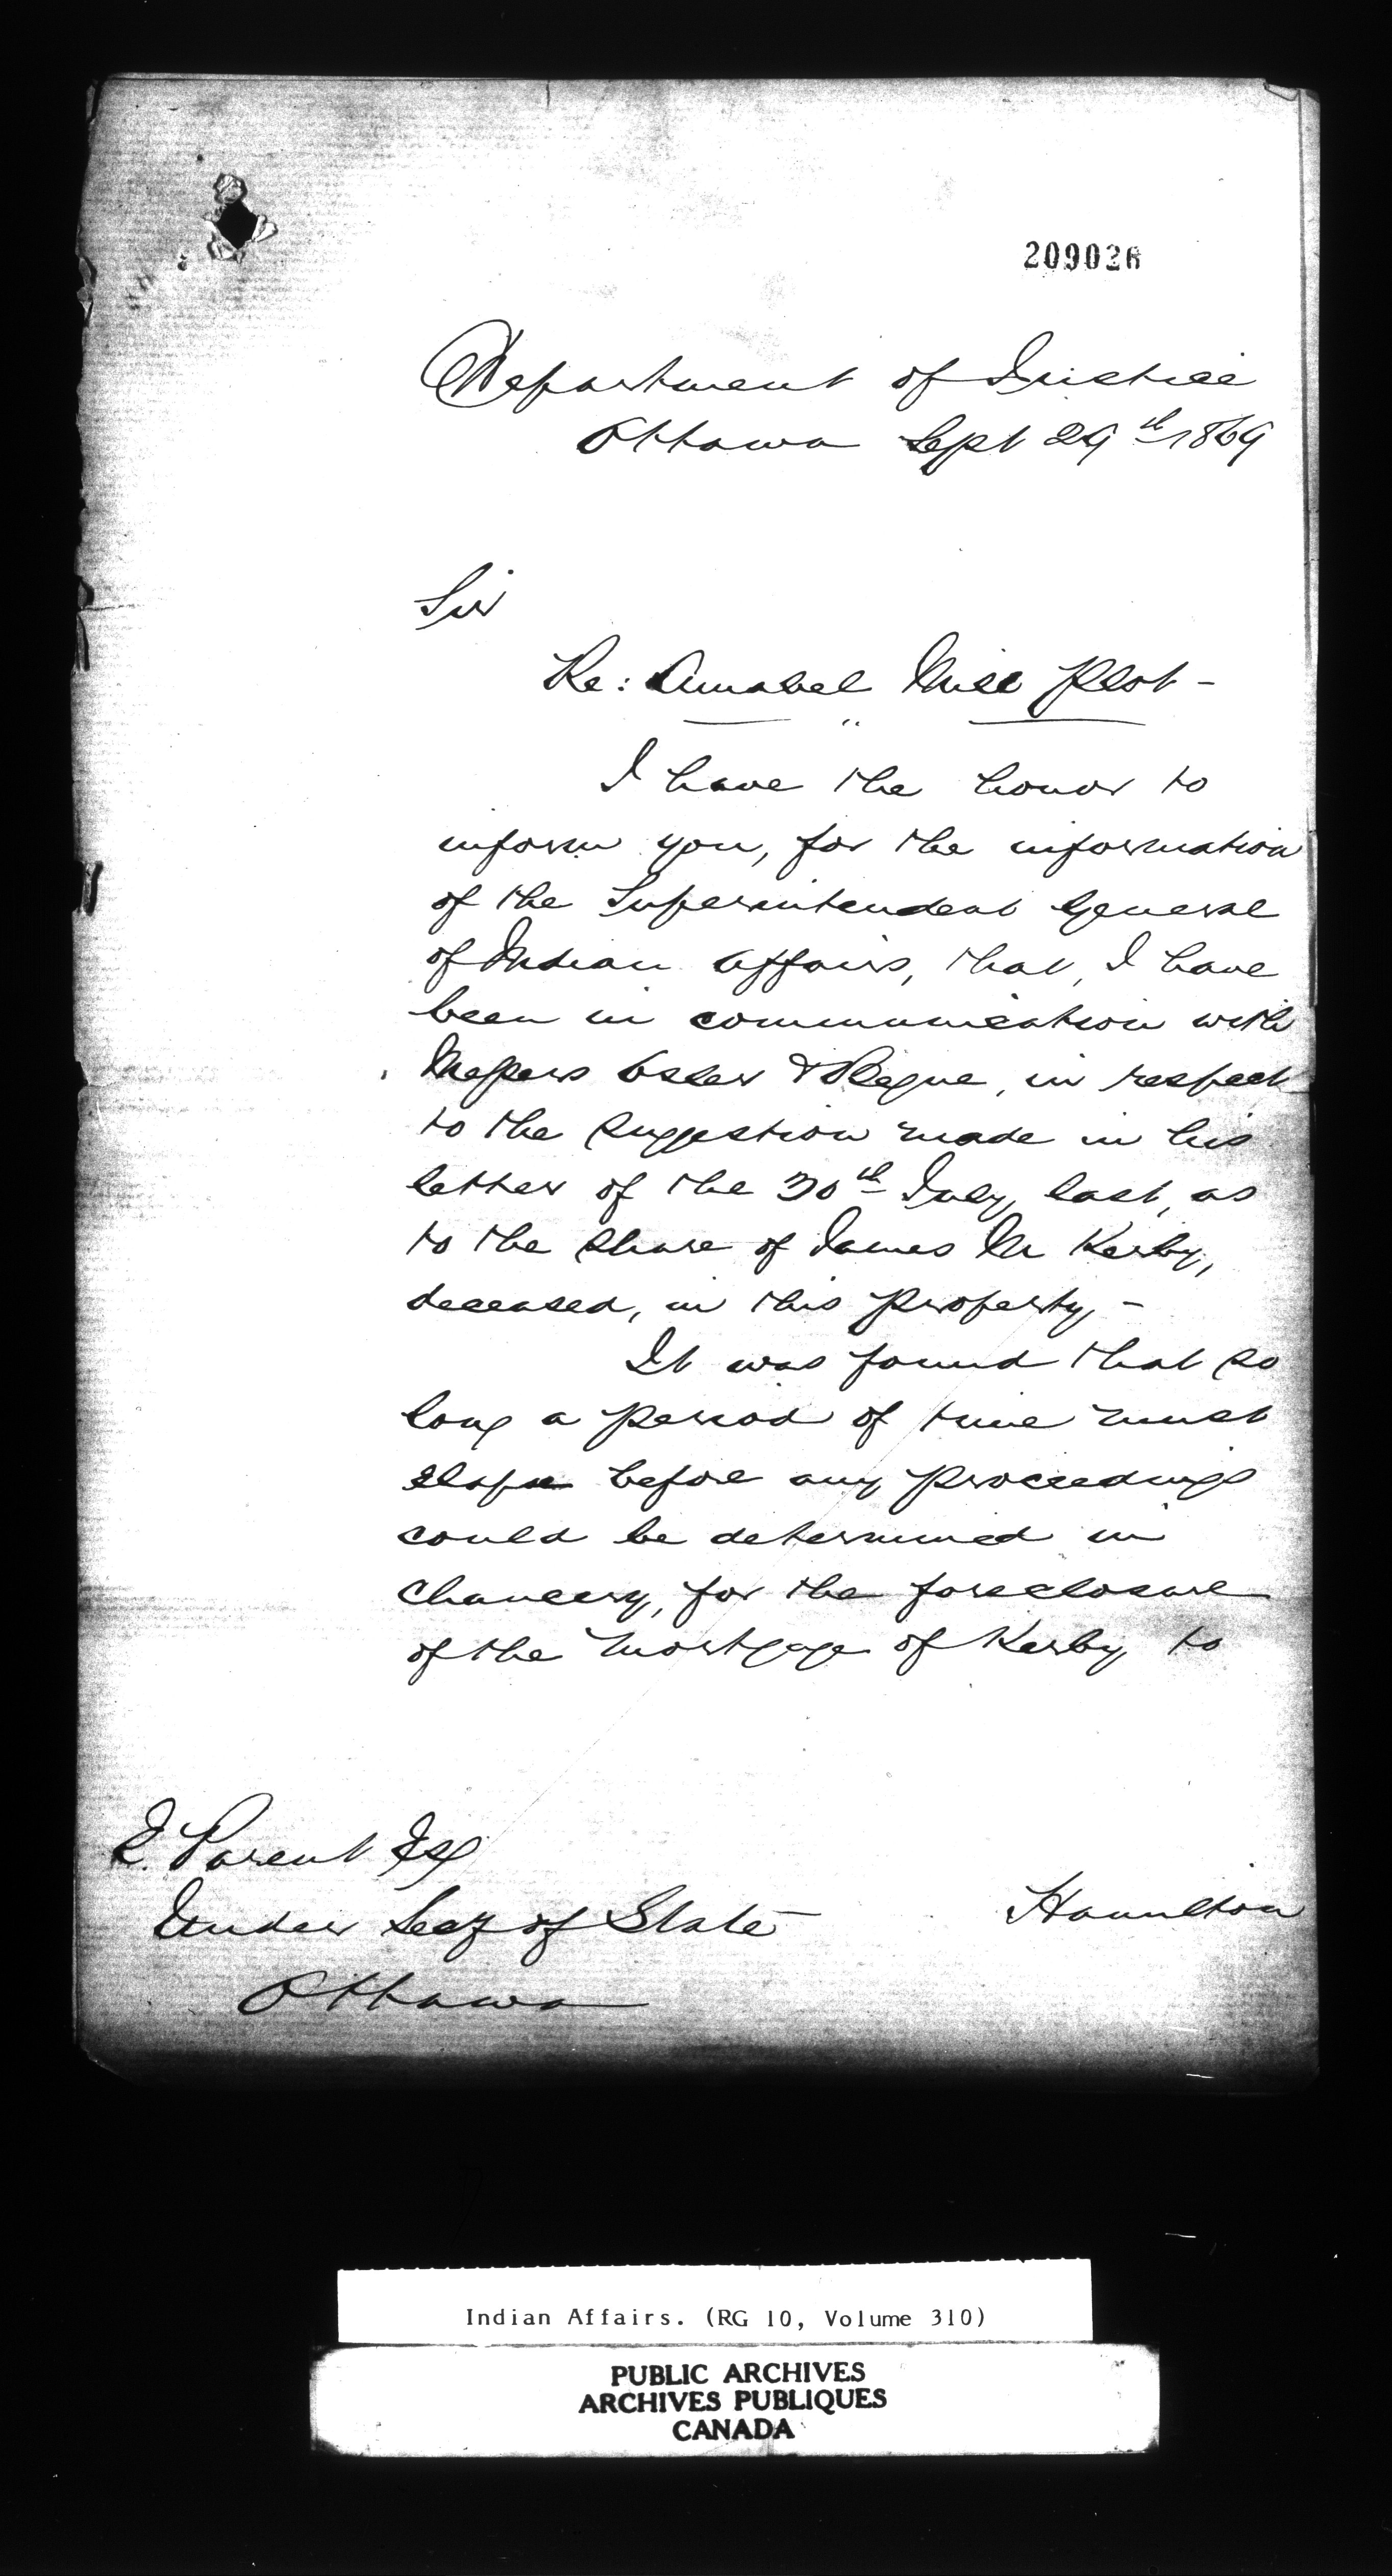 209026
Department of Justice
Ottawa Sept 29th 1869
Sir
Re: Amabel Mill Plot -
I have the honor to
inform you, for the information
of the Superintendent General
of Indian Affairs, that, I have
been in communication with
Messrs Osler &, in respect
to the suggestion made in his
letter of the 30th July, last, as
to the share of James M Kerby,
deceased, in this property, -
It was found that so
long a period of time must
elapse before any proceedings
could be determined in
Chancery, for the foreclosure
of the mortgage of Kerby, to
E. Parent Esq
Under Secy of State
Ottawa
Hamilton
Indian Affairs. (RG 10, Volume 310)
PUBLIC ARCHIVES
ARCHIVES PUBLIQUES
CANADA